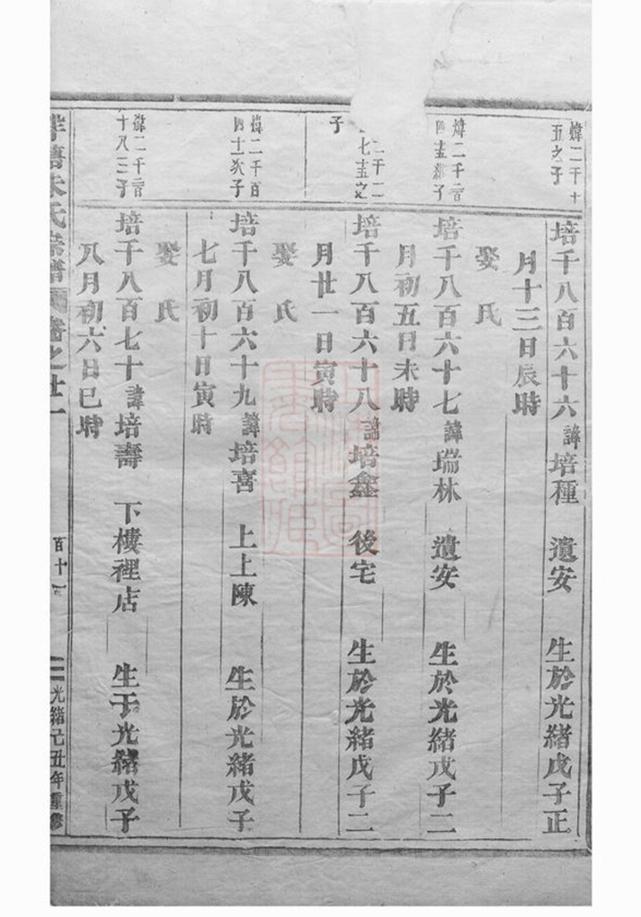 煒二千十
五之子
培千八百六十六諱培種 遺安 生於光緒戊子正
月十三日辰時
娶氏
煒二千
子
培千八百六十七諱瑞林 遺安 生於光緒戊子二
月初五日未時
七之
子
培千八百六十八諱培鑫 後宅 生於光緒戊子二
月廿一日寅時
娶氏
煒二千百
四十次子
培千八百六十九諱培喜 上上陳 生於光緒戊子
七月初十日寅時
娶氏
煒二千
十八三子
培千八百七十諱培壽 下樓裡店 生于光緒戊子
八月初六日巳時
朱氏宗譜 卷之廿一
百十
光緒己丑年重修